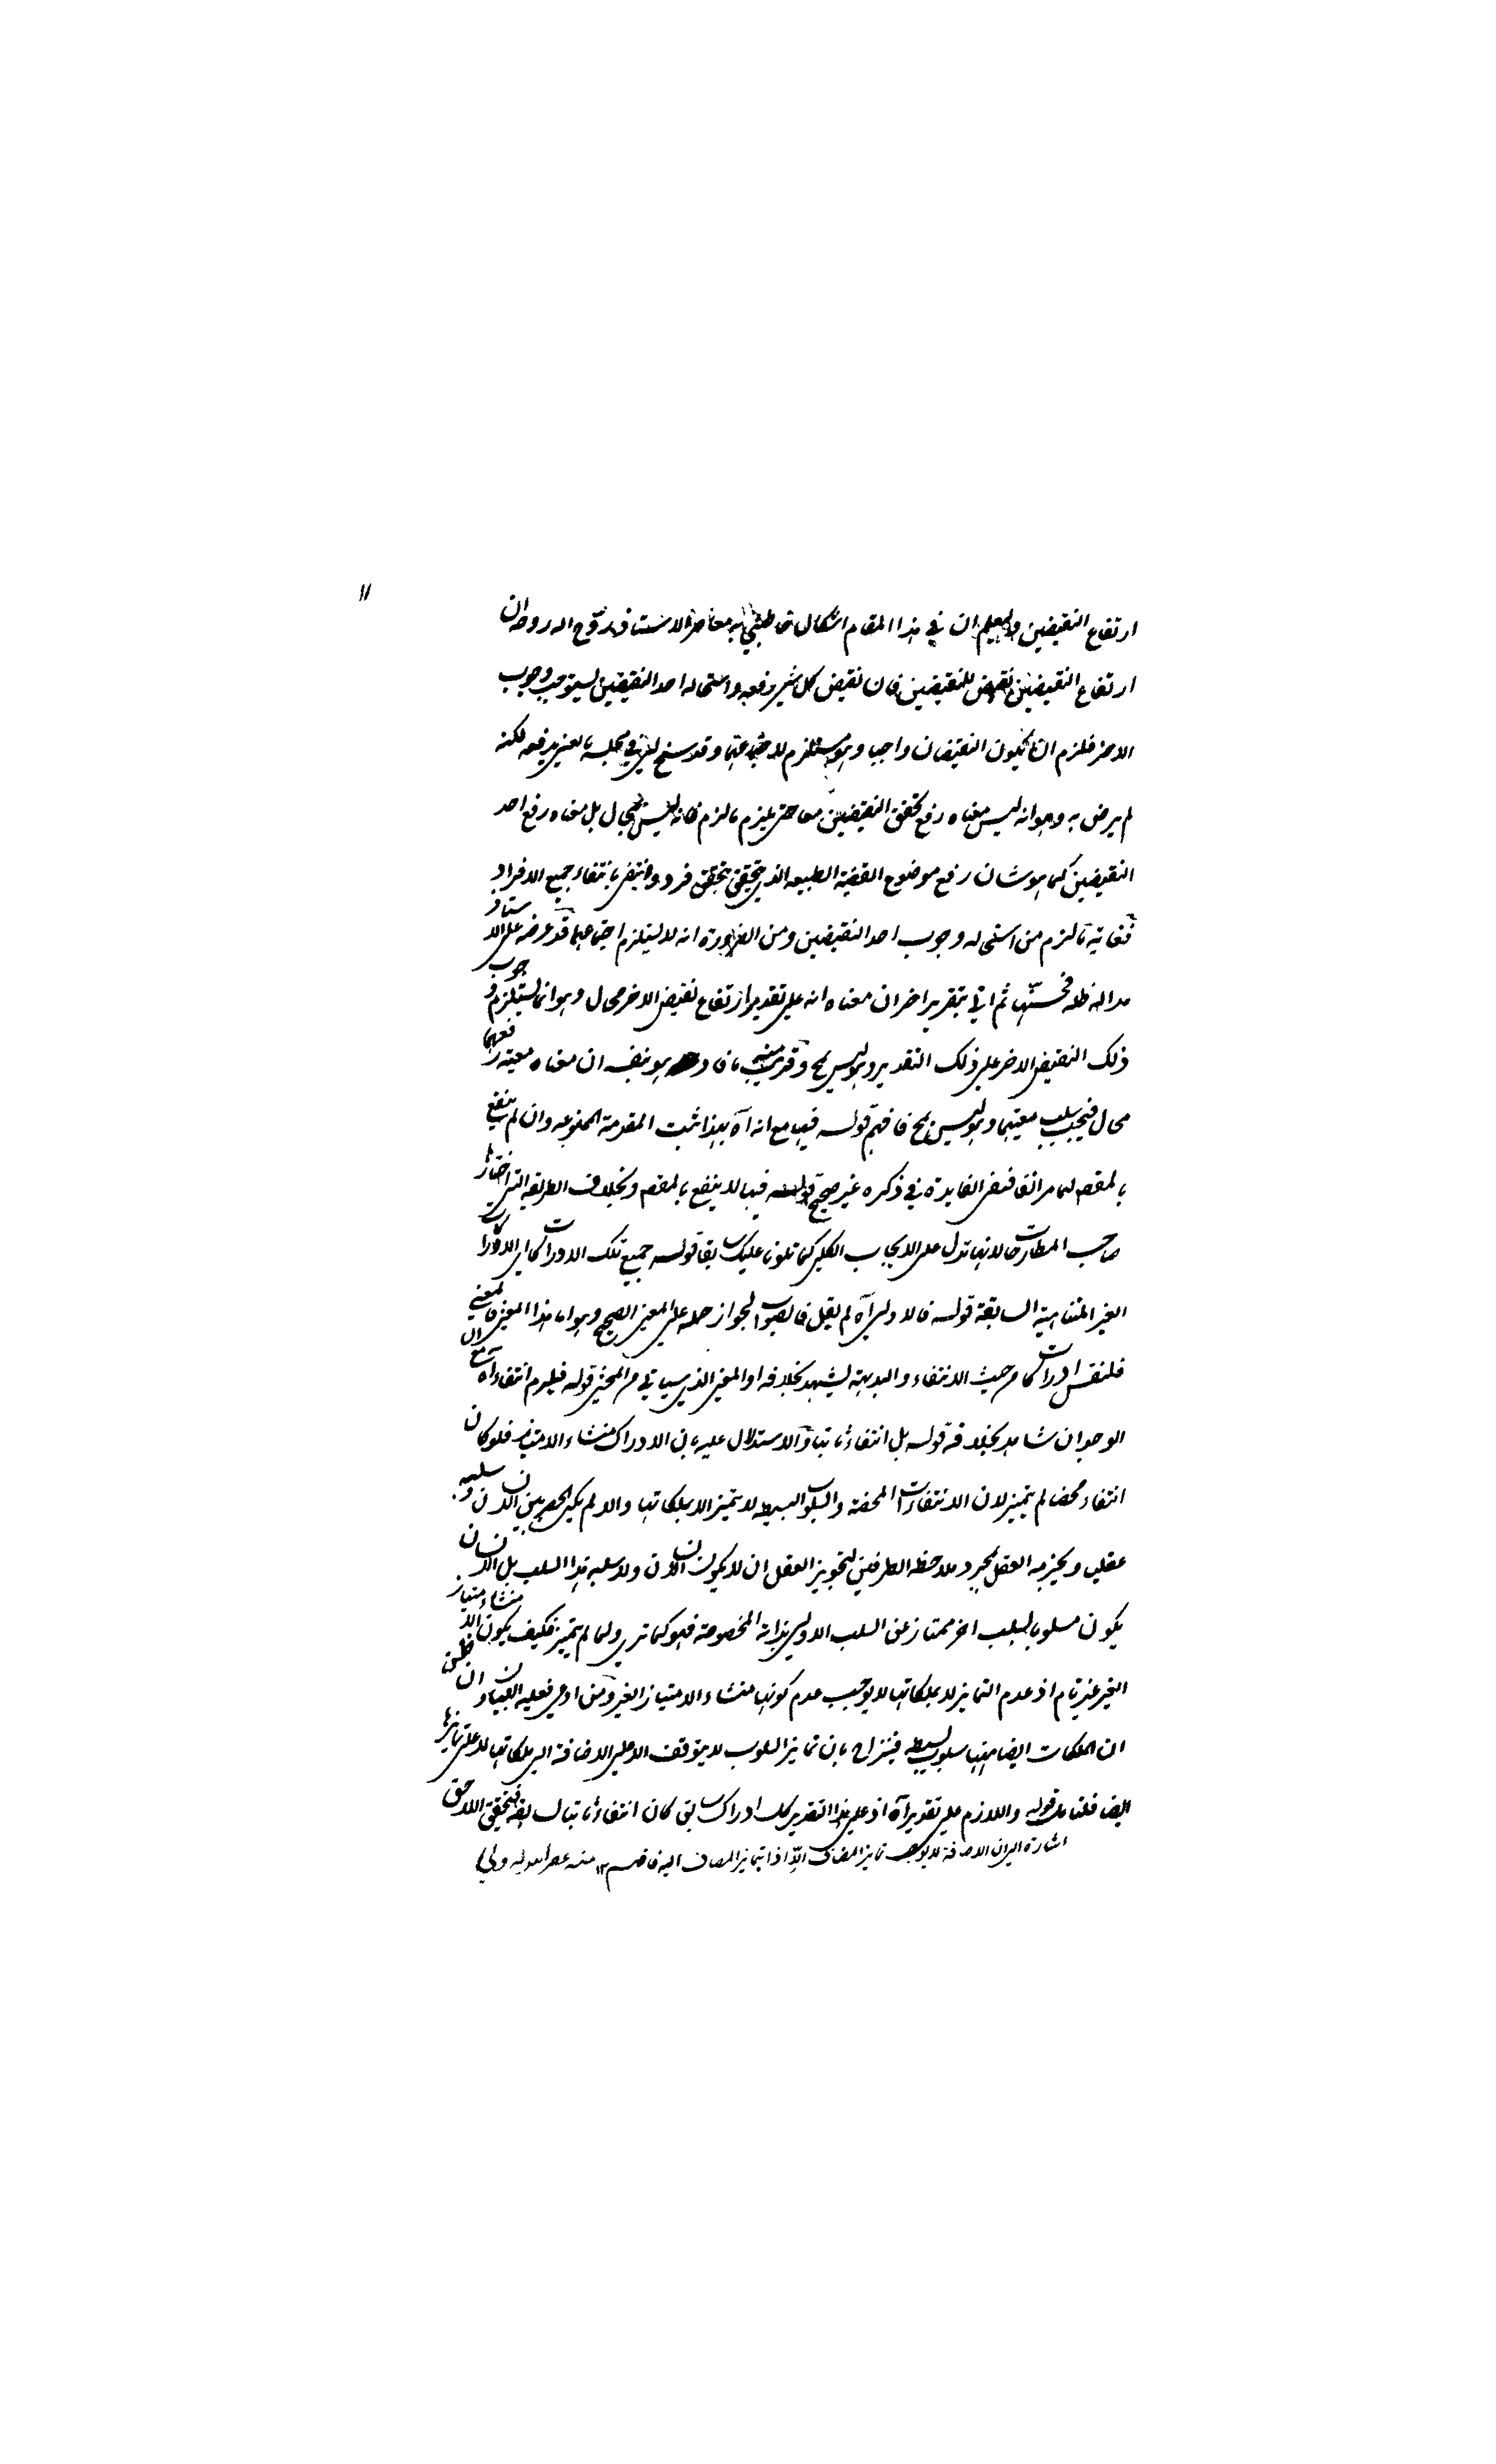 ١١
ارتفاع النقيضين وليعلم ان في هذا المقام اشكال خاطبني به معاصر الاستاذ روح الله روحه ان
ارتفاع النقيضين نقيض للنقيضين فان نقيض كل شئ رفعه واستحالة احد النقيضين يستوجب وجوب
الاخر فلزم ان يكون النقيضان واجبا وهو مستلزم لاجتماعهما وقد سنح لي في مجلسه بالعزيز رفعه لكنه
لم يرض به وهو انه ليس معناه رفع تحقق النقيضين معا حتى يلزم ما لزم فانه ليس بمحال بل معناه رفع احد
النقيضين كما هو شان رفع موضوع القضية الطبيعه الذي يتحقق بتحقق فرد وانتفى بانتفاء جميع الافراد
فغاية ما لزم من استحاله وجوب احد النقيضين ومن الضرورة انه لا يستلزم اجتماعهما قد عرضه على الاستاذ
مد الله ظله فحسنها ثم اتي بتقرير اخر ان معناه انه على تقدير ارتفاع نقيض الاخر محال وهو انما يستلزم وجوب
ذلك النقيض الاخر على ذلك التقدير وليس بمح وقريب منه ما افاد هو بنفسه ان معناه معية رفعهما
محال فيجب سلب معيتهما وهو ليس بمح فافهم قوله فيها مع انه آه بهذا ثبت المقدمة الممنوعه وان لم ينفع
بالمقصم لما مر انفا فنفى الفايدة في ذكره غير صحيح قوله فيها لا ينفع بالمقصم وبخلاف الطريقه التي اختارها
صاحب المطارحات لانها تدل على الايجاب الكلي كما تلونا عليك سابقا قوله جميع تلك الادراكات اي الادراكات
الغير المتناهية السابقة قوله فالاولى آه لم يقل فالصواب لجواز حمله على المعنى الصحيح وهو اما هذا المعنى فالمعنى ان
فلنقس ادراكات من حيث الانتفاء والبديهة يشهد بخلافه او المعنى الذي سياتي من المحشي قوله فيلزم انتفاء آه مع
الوجدان شاهد بخلافه قوله بل انتفاء ثابتا والاستدلال عليه بان الادراك منشاء الامتياز فلو كان
انتفاء محضا لم يتميز لان الانتفاءات المحضة والسلوب البسيطه لا يتميز الا بملكاتها والا لم يكن الحصر بين الانسان وسلبه
عقليا ويجزم به العقل بمجرد ملاحظه الطرفين لتجويز العقل ان لا يكون الانسان ولا سلبه هذا السلب بل الانسان
يكون مسلوبا بسلب اخر ممتاز عن السلب الاول بذاته المخصوصة فهو كما ترى ولما لم يتميز فكيف يكون منشاء امتياز
الغير غير تام اذ عدم التمايز الا بملكاتها لا يوجب عدم كونها منشاء الامتياز الغير ومن ادعى فعليه البيان وان ظن
ان الملكات ايضا منها سلوب بسيطه فيزاح بان تمايز السلوب لا يتوقف الا على الاضافة الى ملكاتها لا على تمايزها
ايضا فلنا مد قوله واللازم على تقدير آه اذ على هذا التقدير كل ادراك سابق كان انتفاء ثابتا لسابقه فتحقق اللاحق
اشارة الى ان الاضافة لا يوجب تمايز المضاف الا اذا تمايز المضاف اليه فافهم ١٢ منه